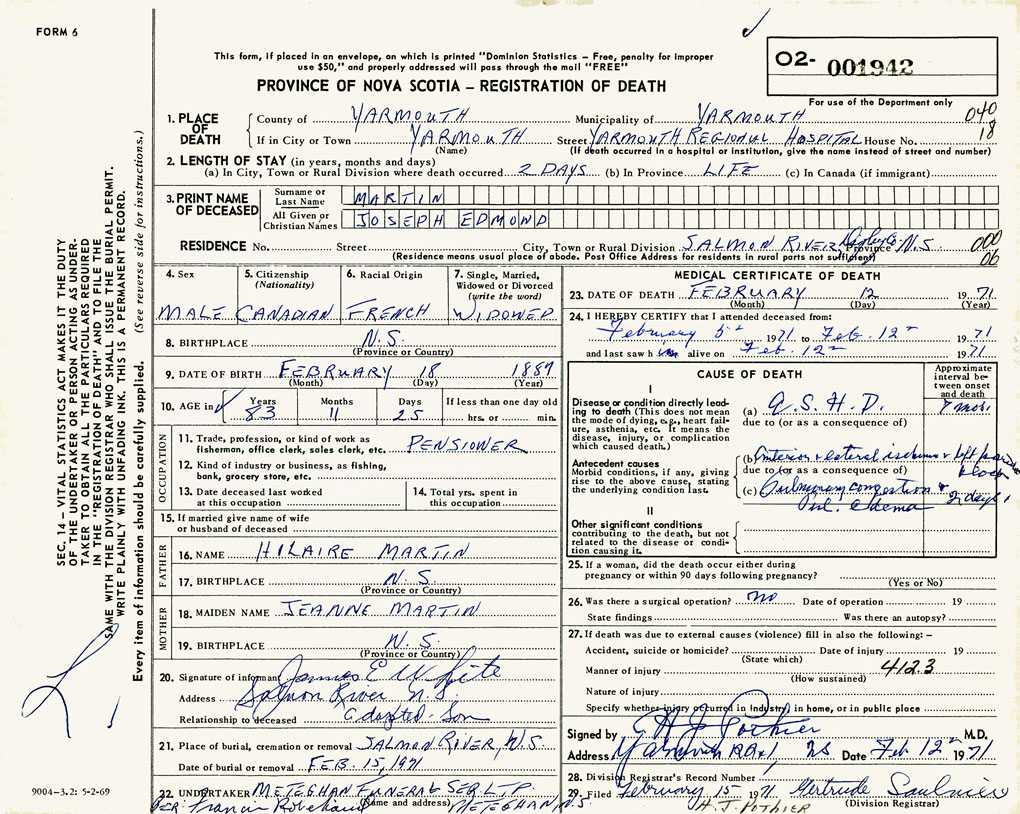 FORM 6
This form, if placed in an envelope, on which is printed "Dominion Statistics – Free, penalty for improper
use $50," and properly addressed will pass through the mail "FREE"
PROVINCE OF NOVA SCOTIA – REGISTRATION OF DEATH
02- 001942
For use of the Department only
SEC. 14 – VITAL STATISTICS ACT MAKES IT THE DUTY
OF THE UNDERTAKER OR PERSON ACTING AS UNDER-
TAKER TO OBTAIN ALL THE PARTICULARS REQUIRED
IN THE "REGISTRATION OF DEATH" AND TO FILE THE
SAME WITH THE DIVISION REGISTRAR WHO SHALL ISSUE THE BURIAL PERMIT.
WRITE PLAINLY WITH UNFADING INK. THIS IS A PERMANENT RECORD.
Every item of information should be carefully supplied. (See reverse side for instructions.)
1. PLACE OF DEATH
County of YARMOUTH Municipality of YARMOUTH 040
If in City or Town YARMOUTH Street YARMOUTH REGIONAL HOSPITAL House No. 18
(Name) (If death occurred in a hospital or institution, give the name instead of street and number)
2. LENGTH OF STAY (in years, months and days)
(a) In City, Town or Rural Division where death occurred 2 DAYS (b) In Province LIFE (c) In Canada (if immigrant)
3. PRINT NAME OF DECEASED
Surname or Last Name MARTIN
All Given or Christian Names JOSEPH EDMOND
RESIDENCE No. Street City, Town or Rural Division SALMON RIVER Digby Co Province N.S. 000
(Residence means usual place of abode. Post Office Address for residents in rural parts not sufficient) 06
4. Sex 5. Citizenship (Nationality) 6. Racial Origin 7. Single, Married, Widowed or Divorced (write the word)
MALE CANADIAN FRENCH WIDOWED
8. BIRTHPLACE N.S.
(Province or Country)
9. DATE OF BIRTH FEBRUARY 18 1887
(Month) (Day) (Year)
10. AGE in Years 83 Months 11 Days 25 If less than one day old hrs. or min.
OCCUPATION
11. Trade, profession, or kind of work as
fisherman, office clerk, sales clerk, etc. PENSIOWER
12. Kind of industry or business, as fishing,
bank, grocery store, etc.
13. Date deceased last worked
at this occupation
14. Total yrs. spent in
this occupation
15. If married give name of wife
or husband of deceased
FATHER
16. NAME HILAIRE MARTIN
17. BIRTHPLACE N.S.
(Province or Country)
MOTHER
18. MAIDEN NAME JEANNE MARTIN
19. BIRTHPLACE N.S.
(Province or Country)
20. Signature of informant James E White
Address Salmon River N.S.
Relationship to deceased Adopted-Son
21. Place of burial, cremation or removal SALMON RIVER, N.S
Date of burial or removal FEB. 15, 1971
22. UNDERTAKER METEGHAN FUNERAL SER. LTD.
(Name and address) METEGHAN, N.S.
PER: Francis Robichaud
9004-3.2: 5-2-69
MEDICAL CERTIFICATE OF DEATH
23. DATE OF DEATH FEBRUARY 12 1971
(Month) (Day) (Year)
24. I HEREBY CERTIFY that I attended deceased from:
February 5th 1971 to Feb. 12th 1971
and last saw him alive on Feb. 12th 1971
CAUSE OF DEATH
Approximate interval between onset and death
I
Disease or condition directly lead-
ing to death (This does not mean
the mode of dying, e.g., heart fail-
ure, asthenia, etc. It means the
disease, injury, or complication
which caused death.)
(a) A.S.H.D. 7 mos.
due to (or as a consequence of)
Antecedent causes
Morbid conditions, if any, giving
rise to the above cause, stating
the underlying condition last.
(b) Anterior & lateral ischemia & left block
due to (or as a consequence of)
(c) Pulmonary congestion & 2 days
Pul. edema
II
Other significant conditions
contributing to the death, but not
related to the disease or condi-
tion causing it.
25. If a woman, did the death occur either during
pregnancy or within 90 days following pregnancy?
(Yes or No)
26. Was there a surgical operation? no Date of operation 19
State findings Was there an autopsy?
27. If death was due to external causes (violence) fill in also the following: –
Accident, suicide or homicide? Date of injury 19
(State which)
Manner of injury 412.3
(How sustained)
Nature of injury
Specify whether injury occurred in Industry, in home, or in public place
Signed by H J Pothier M.D.
Address Yarmouth RR#1, NS Date Feb 12th 1971
28. Division Registrar's Record Number
29. Filed February 15 1971 Gertrude Saulnier
(Division Registrar)
H. J. POTHIER